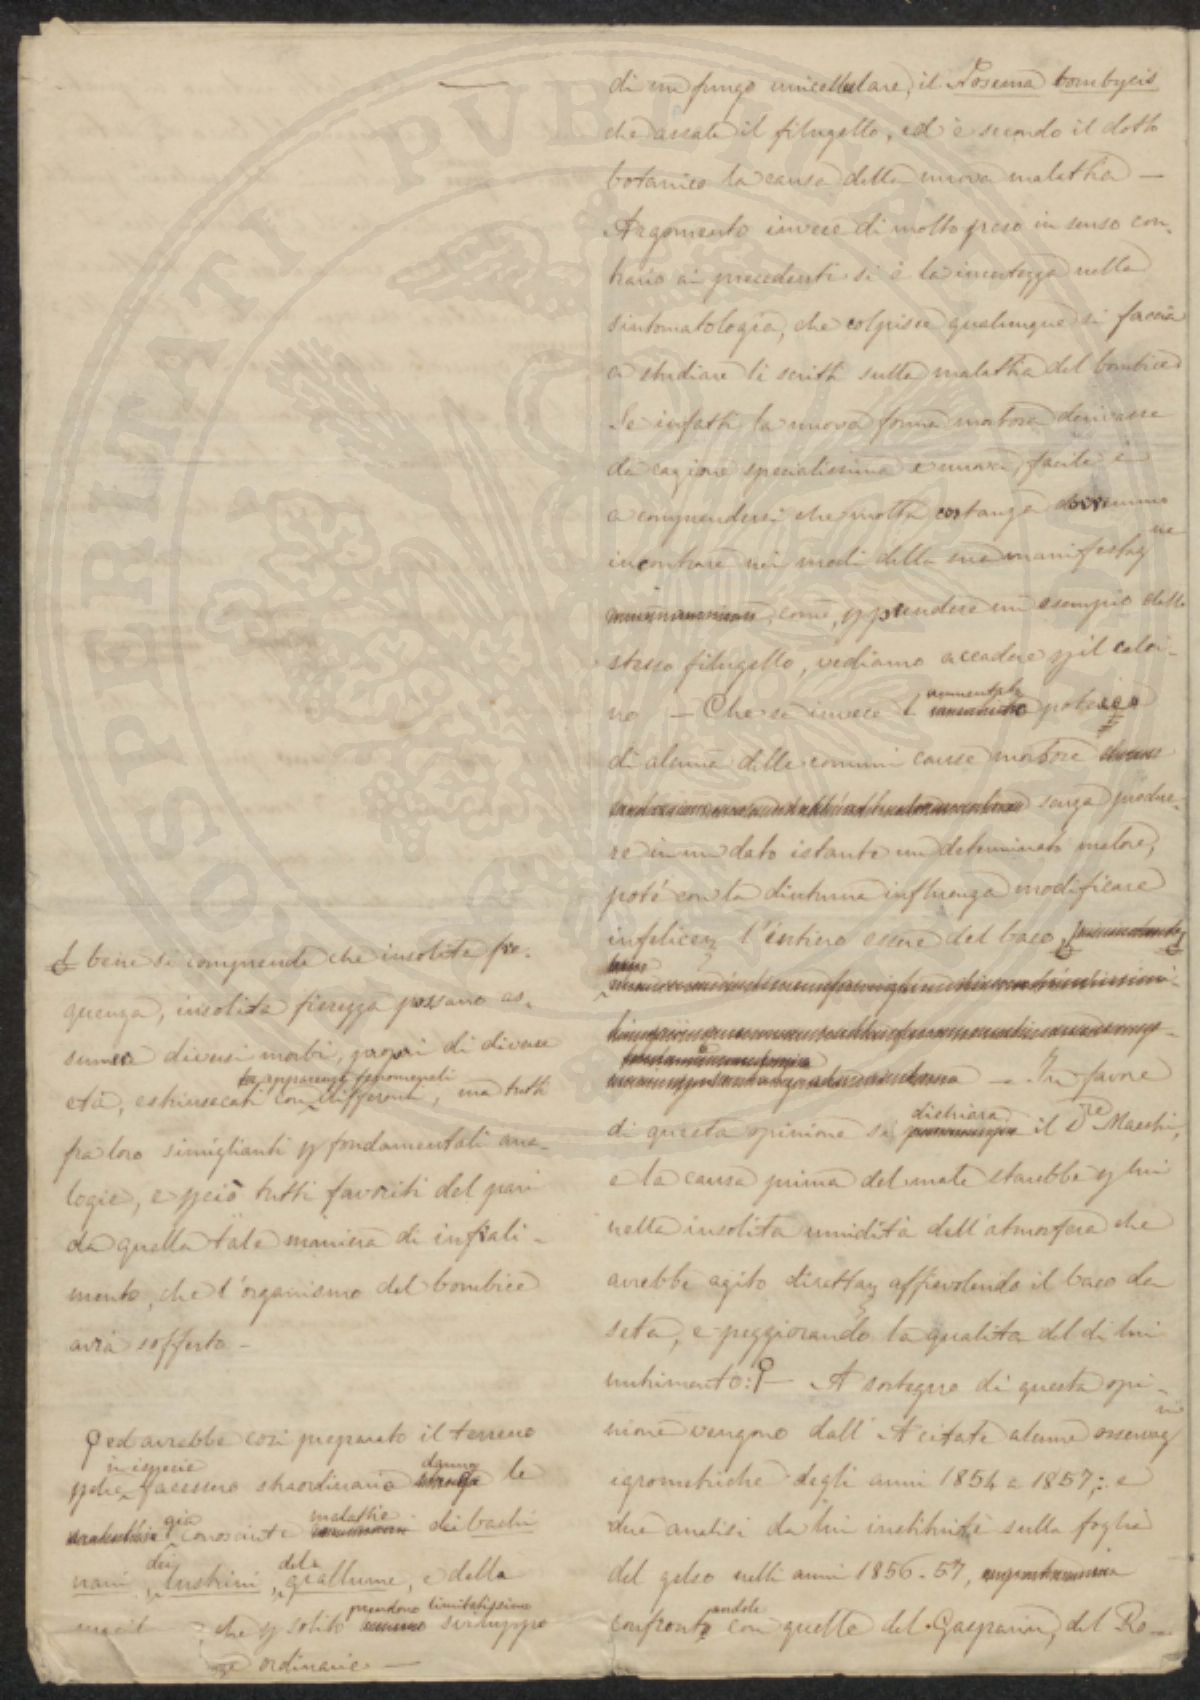 di un fungo unicellulare, il Nosema bombycis
che assale il filugello, ed è secondo il dotto
botanico la causa della nuova malattia —
Argomento invece di molto peso in senso con-
trario ai precedenti si è la incertezza nella
sintomatologia, che colpisce qualunque si faccia
a studiare li scritti sulla malattia del bombice
Se infatti la nuova forma morbosa derivasse
da cagione specialissima e nuova, facile è
a comprendersi che molta costanza dovremmo
incontrare nei modi della sua manifestaz ne
come, p prendere un esempio dallo
stesso filugello, vediamo accadere p il calci-
no — Che se invece l' aumentata potenza
di alcuna delle comuni cause morbose
senza produr-
re in un dato istante un determinato malore,
potè con la diuturna influenza modificare
infelicem l'intiero essere del baco,
— In favore
di questa opinione si dichiara il Dre Maestri,
e la causa prima del male starebbe p lui
nella insolita umidità dell'atmosfera che
avrebbe agito direttam affievolendo il baco da
seta, e peggiorando la qualità del di lui
nutrimento: — A sostegno di questa opi-
nione vengono dall' A citate alcune osservaz ni
igrometriche degli anni 1854 a 1857; e
due analisi da lui instituite sulla foglia
del gelso nelli anni 1856-57,
confrontandole con quelle del Gasparin, del Ro-
E bene si comprende che insolita fre-
quenza, insolita fierezza possano as-
sumere diversi morbi, proprii di diverse
età, estrinsecati con apparenze fenomenali differenti, ma tutti
fra loro simiglianti p fondamentali ana-
logie, e p ciò tutti favoriti del pari
da quella tale maniera di infrali-
mento, che l'organismo del bombice
avrà sofferto —
ed avrebbe così preparato il terreno
p che in ispecie facessero straordinario danno le
già conosciute malattie dei bachi
nani, dei lustrini, del giallume, e della
che p solito prendono limitatissimo sviluppo
ordinarie —
SPERITATI PVBLICAE